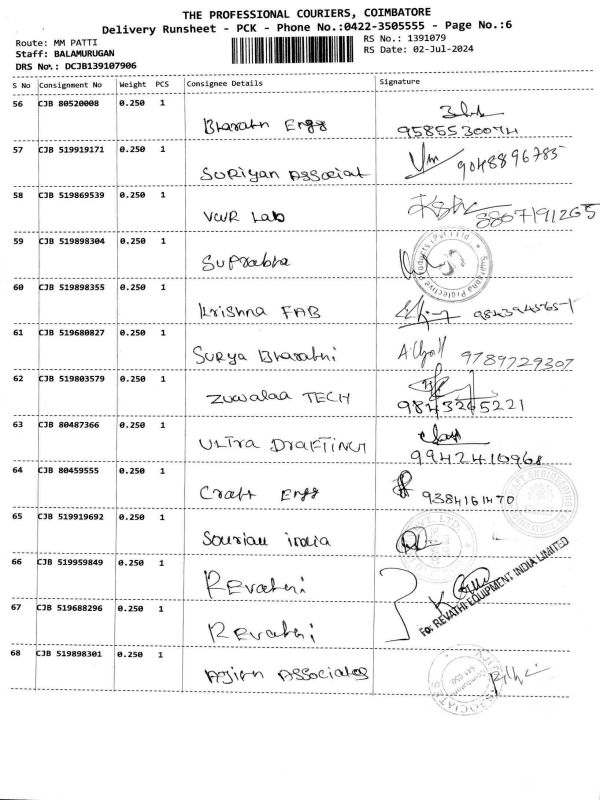 THE PROFESSIONAL COURIERS, COIMBATORE
Delivery Runsheet - PCK - Phone No.:0422-3505555 - Page No.:6
Route: MM PATTI
RS No.: 1391079
Staff: BALAMURUGAN
RS Date: 02-Jul-2024
DRS No.: DCJB139107906
S No Consignment No Weight PCS Consignee Details Signature
56 CJB 80520008 0.250 1
Bharath Engg 9585530074
57 CJB 519919171 0.250 1
SURIyan ASSociat 9048896785
58 CJB 519869539 0.250 1
VWR Lab 8807191265
59 CJB 519898304 0.250 1
Suprabha
60 CJB 519898355 0.250 1
Krishna FAB
61 CJB 519680827 0.250 1
Surya Bharathi 9789729307
62 CJB 519803579 0.250 1
Zuwalaa TECH 9843265221
63 CJB 80487366 0.250 1
ULTRA DRAFTING 9942410968
64 CJB 80459555 0.250 1
Craft Engg 9384161470
65 CJB 519919692 0.250 1
Sourian india
66 CJB 519959849 0.250 1
REvathi
For REVATHI EQUIPMENT INDIA LIMITED
67 CJB 519688296 0.250 1
REvathi
68 CJB 519898301 0.250 1
Associates